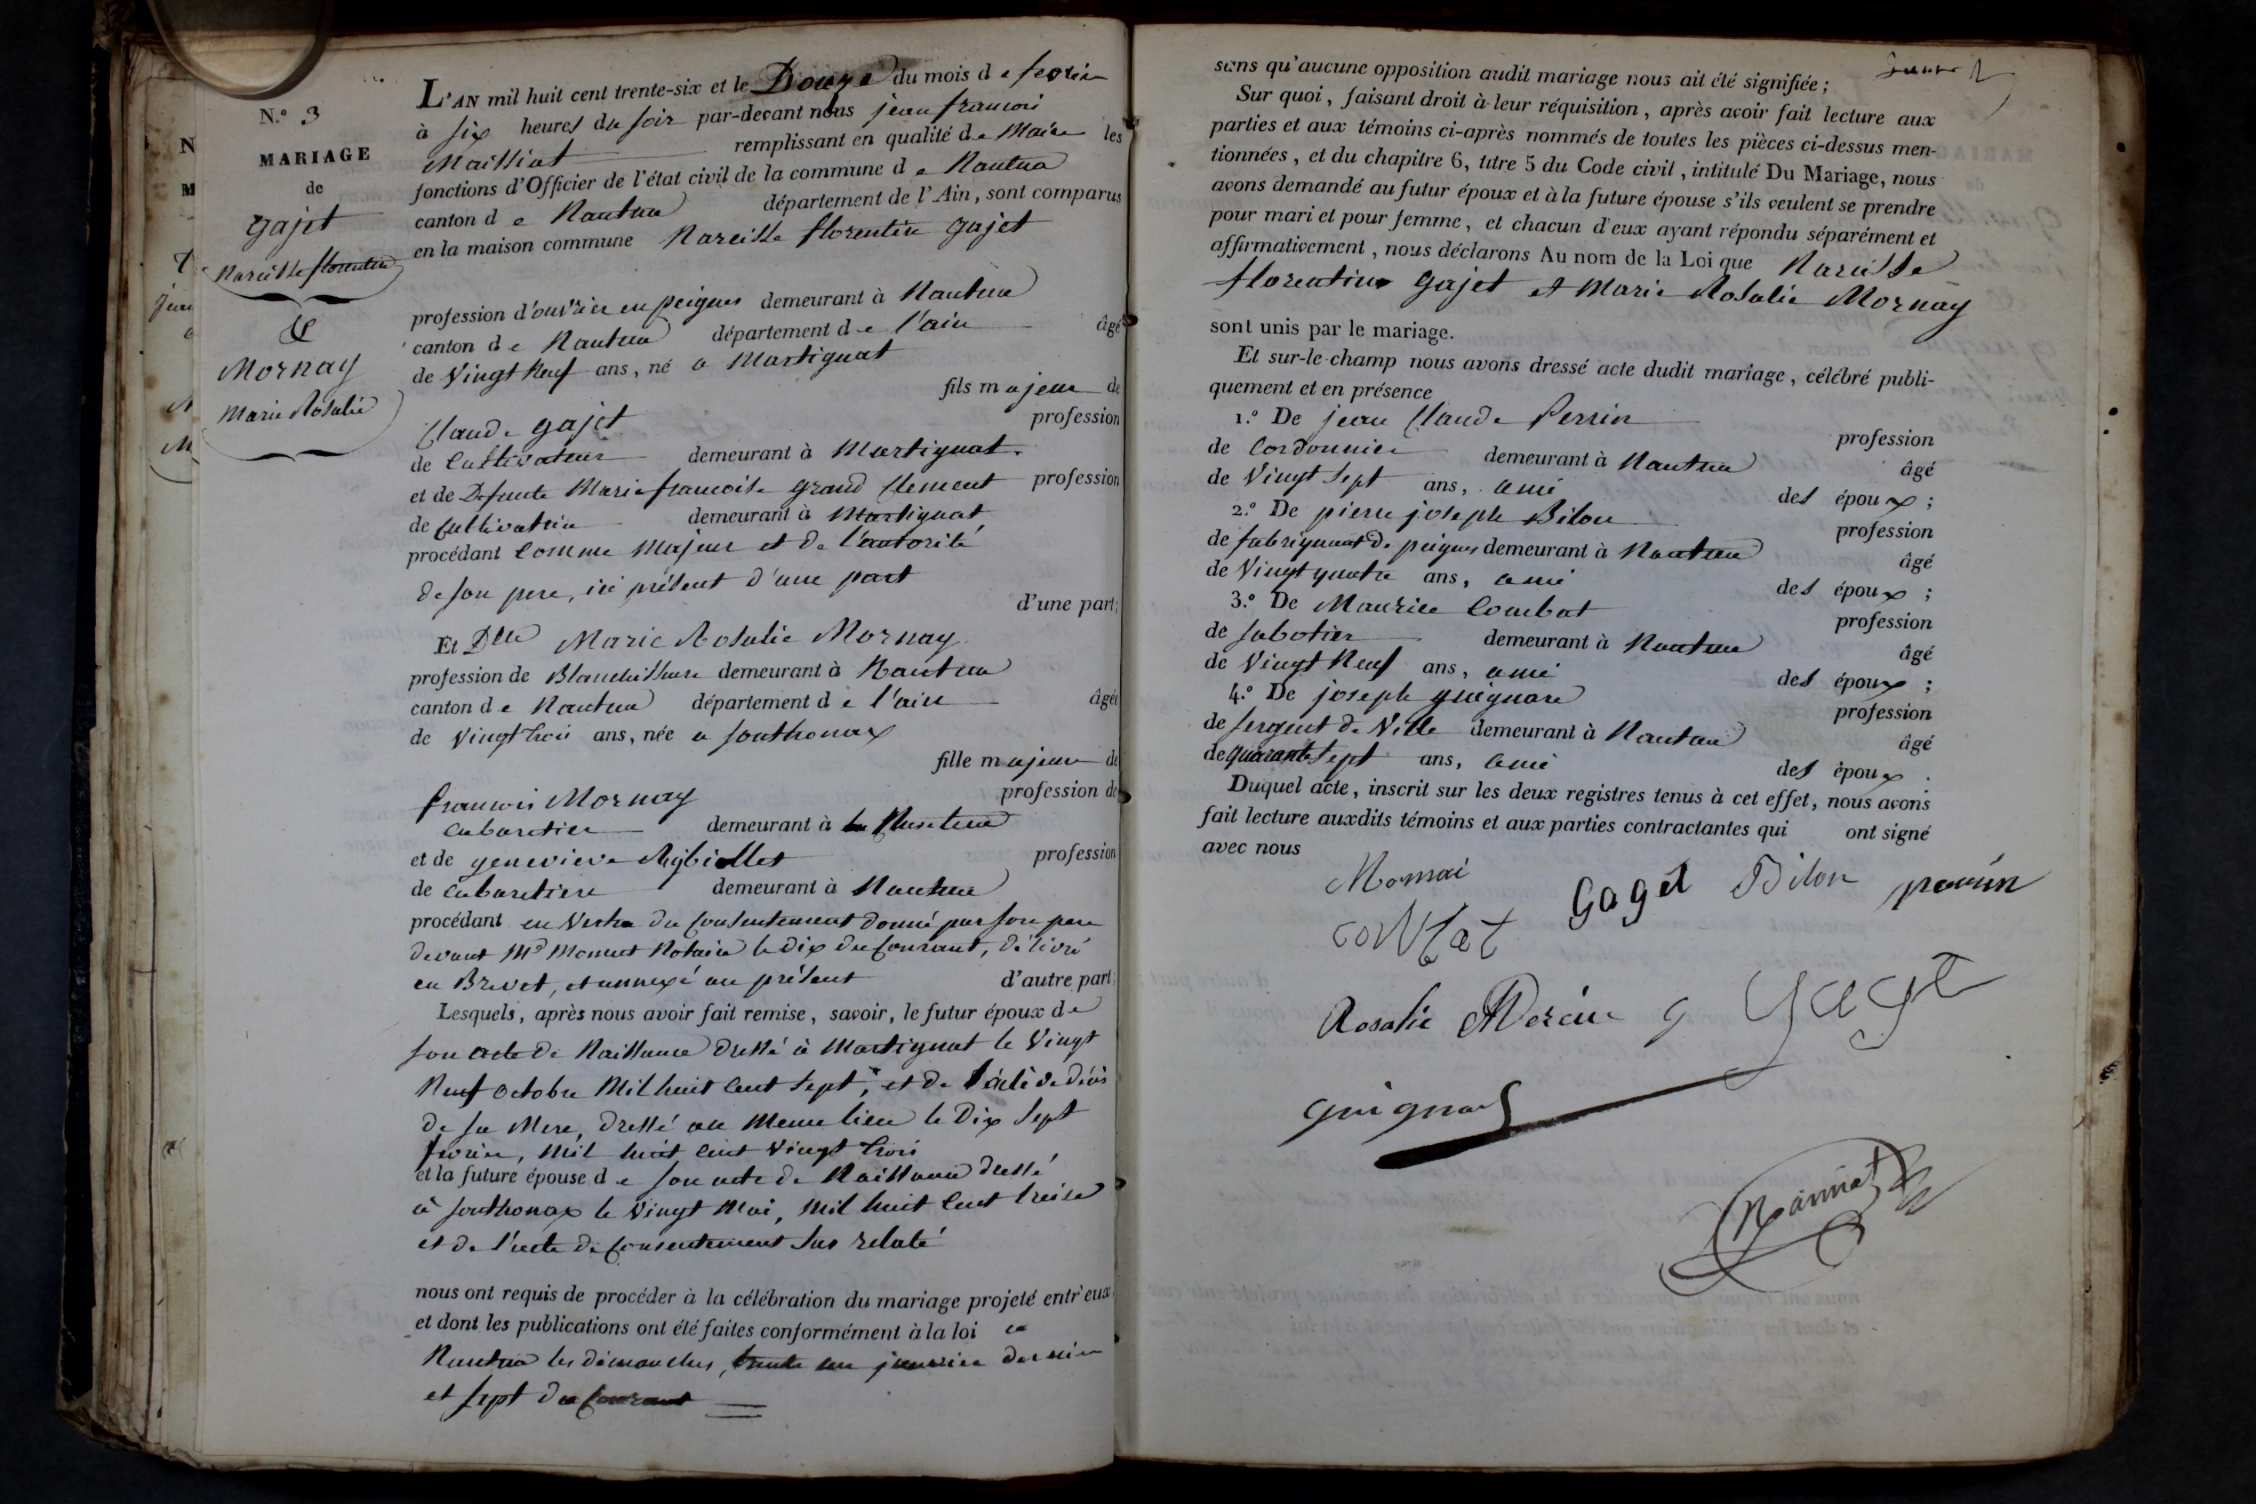 N.º 3
MARIAGE
de
Gajet
Narcisse florentin
&
Mornay
Marie Rosalie
L'AN mil huit cent trente-six et le Douze du mois de fevrier
à six heures du soir par-devant nous jean francois
Maissiat remplissant en qualité de Maire les
fonctions d'Officier de l'état civil de la commune de Nantua
canton de Nantua département de l'Ain, sont comparus
en la maison commune Narcisse florentin gajet
profession d'ouvrier en peignes demeurant à Nantua
canton de Nantua département de l'ain âgé
de Vingt Neuf ans, né a Martignat
fils majeur de
Claude gajet profession
de Cultivateur demeurant à Martignat.
et de Defunte Marie francoise grand Clement profession
de Cultivatrice demeurant à Martignat
procédant Comme Majeur et de l'autorité
de son pere, ici présent d'une part
d'une part;
Et Dlle Marie Rosalie Mornay
profession de Blanchisseuse demeurant à Nantua
canton de Nantua département de l'ain âgée
de Vingt trois ans, née a Sonthonax
fille majeure de
francois Mornay profession de
Cabaretier demeurant à Nantua
et de genevieve profession
de Cabaretiere demeurant à Nantua
procédant en Vertu du Consentement donné par son pere
devant Me Notaire le Dix du Courant, délivré
en Brevet, et annexé au présent d'autre part.
Lesquels, après nous avoir fait remise, savoir, le futur époux de
son acte de Naissance dressé à Martignat le Vingt
Neuf octobre Mil huit Cent Sept, et de l'acte de décès
de sa Mere, dressé au Meme lieu le Dix Sept
fevrier, Mil huit Cent Vingt trois
et la future épouse de son acte de Naissance dressé
à Sonthonax le Vingt Mai, Mil huit Cent treise
et de l'acte de Consentement sus relaté
nous ont requis de procéder à la célébration du mariage projeté entr'eux
et dont les publications ont été faites conformément à la loi a
Nantua les dimanches, trente un janvier dernier
et Sept du Courant
sans qu'aucune opposition audit mariage nous ait été signifiée;
Sur quoi, faisant droit à leur réquisition, après avoir fait lecture aux
parties et aux témoins ci-après nommés de toutes les pièces ci-dessus men-
tionnées, et du chapitre 6, titre 5 du Code civil, intitulé Du Mariage, nous
avons demandé au futur époux et à la future épouse s'ils veulent se prendre
pour mari et pour femme, et chacun d'eux ayant répondu séparément et
affirmativement, nous déclarons Au nom de la Loi que Narcisse
florentin gajet et Marie Rosalie Mornay
sont unis par le mariage.
Et sur-le-champ nous avons dressé acte dudit mariage, célébré publi-
quement et en présence
1.º De jean Claude Perrin profession
de Cordonnier demeurant à Nantua âgé
de Vingt Sept ans, ami des époux;
2.º De pierre joseph Bilon profession
de fabriquant de peignes demeurant à Nantua âgé
de Vingt quatre ans, ami des époux;
3.º De Maurice Combat profession
de Sabotier demeurant à Nantua âgé
de Vingt Neuf ans, ami des époux;
4.º De joseph guignard profession
de Sergent de Ville demeurant à Nantua âgé
de quarante Sept ans, ami des époux.
Duquel acte, inscrit sur les deux registres tenus à cet effet, nous avons
fait lecture auxdits témoins et aux parties contractantes qui ont signé
avec nous
Gaget Bilon
Rosalie